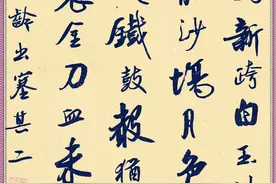 馬新跨白玉
沙場月色
鐵鼓聲猶
金刀血未
齡出塞其二